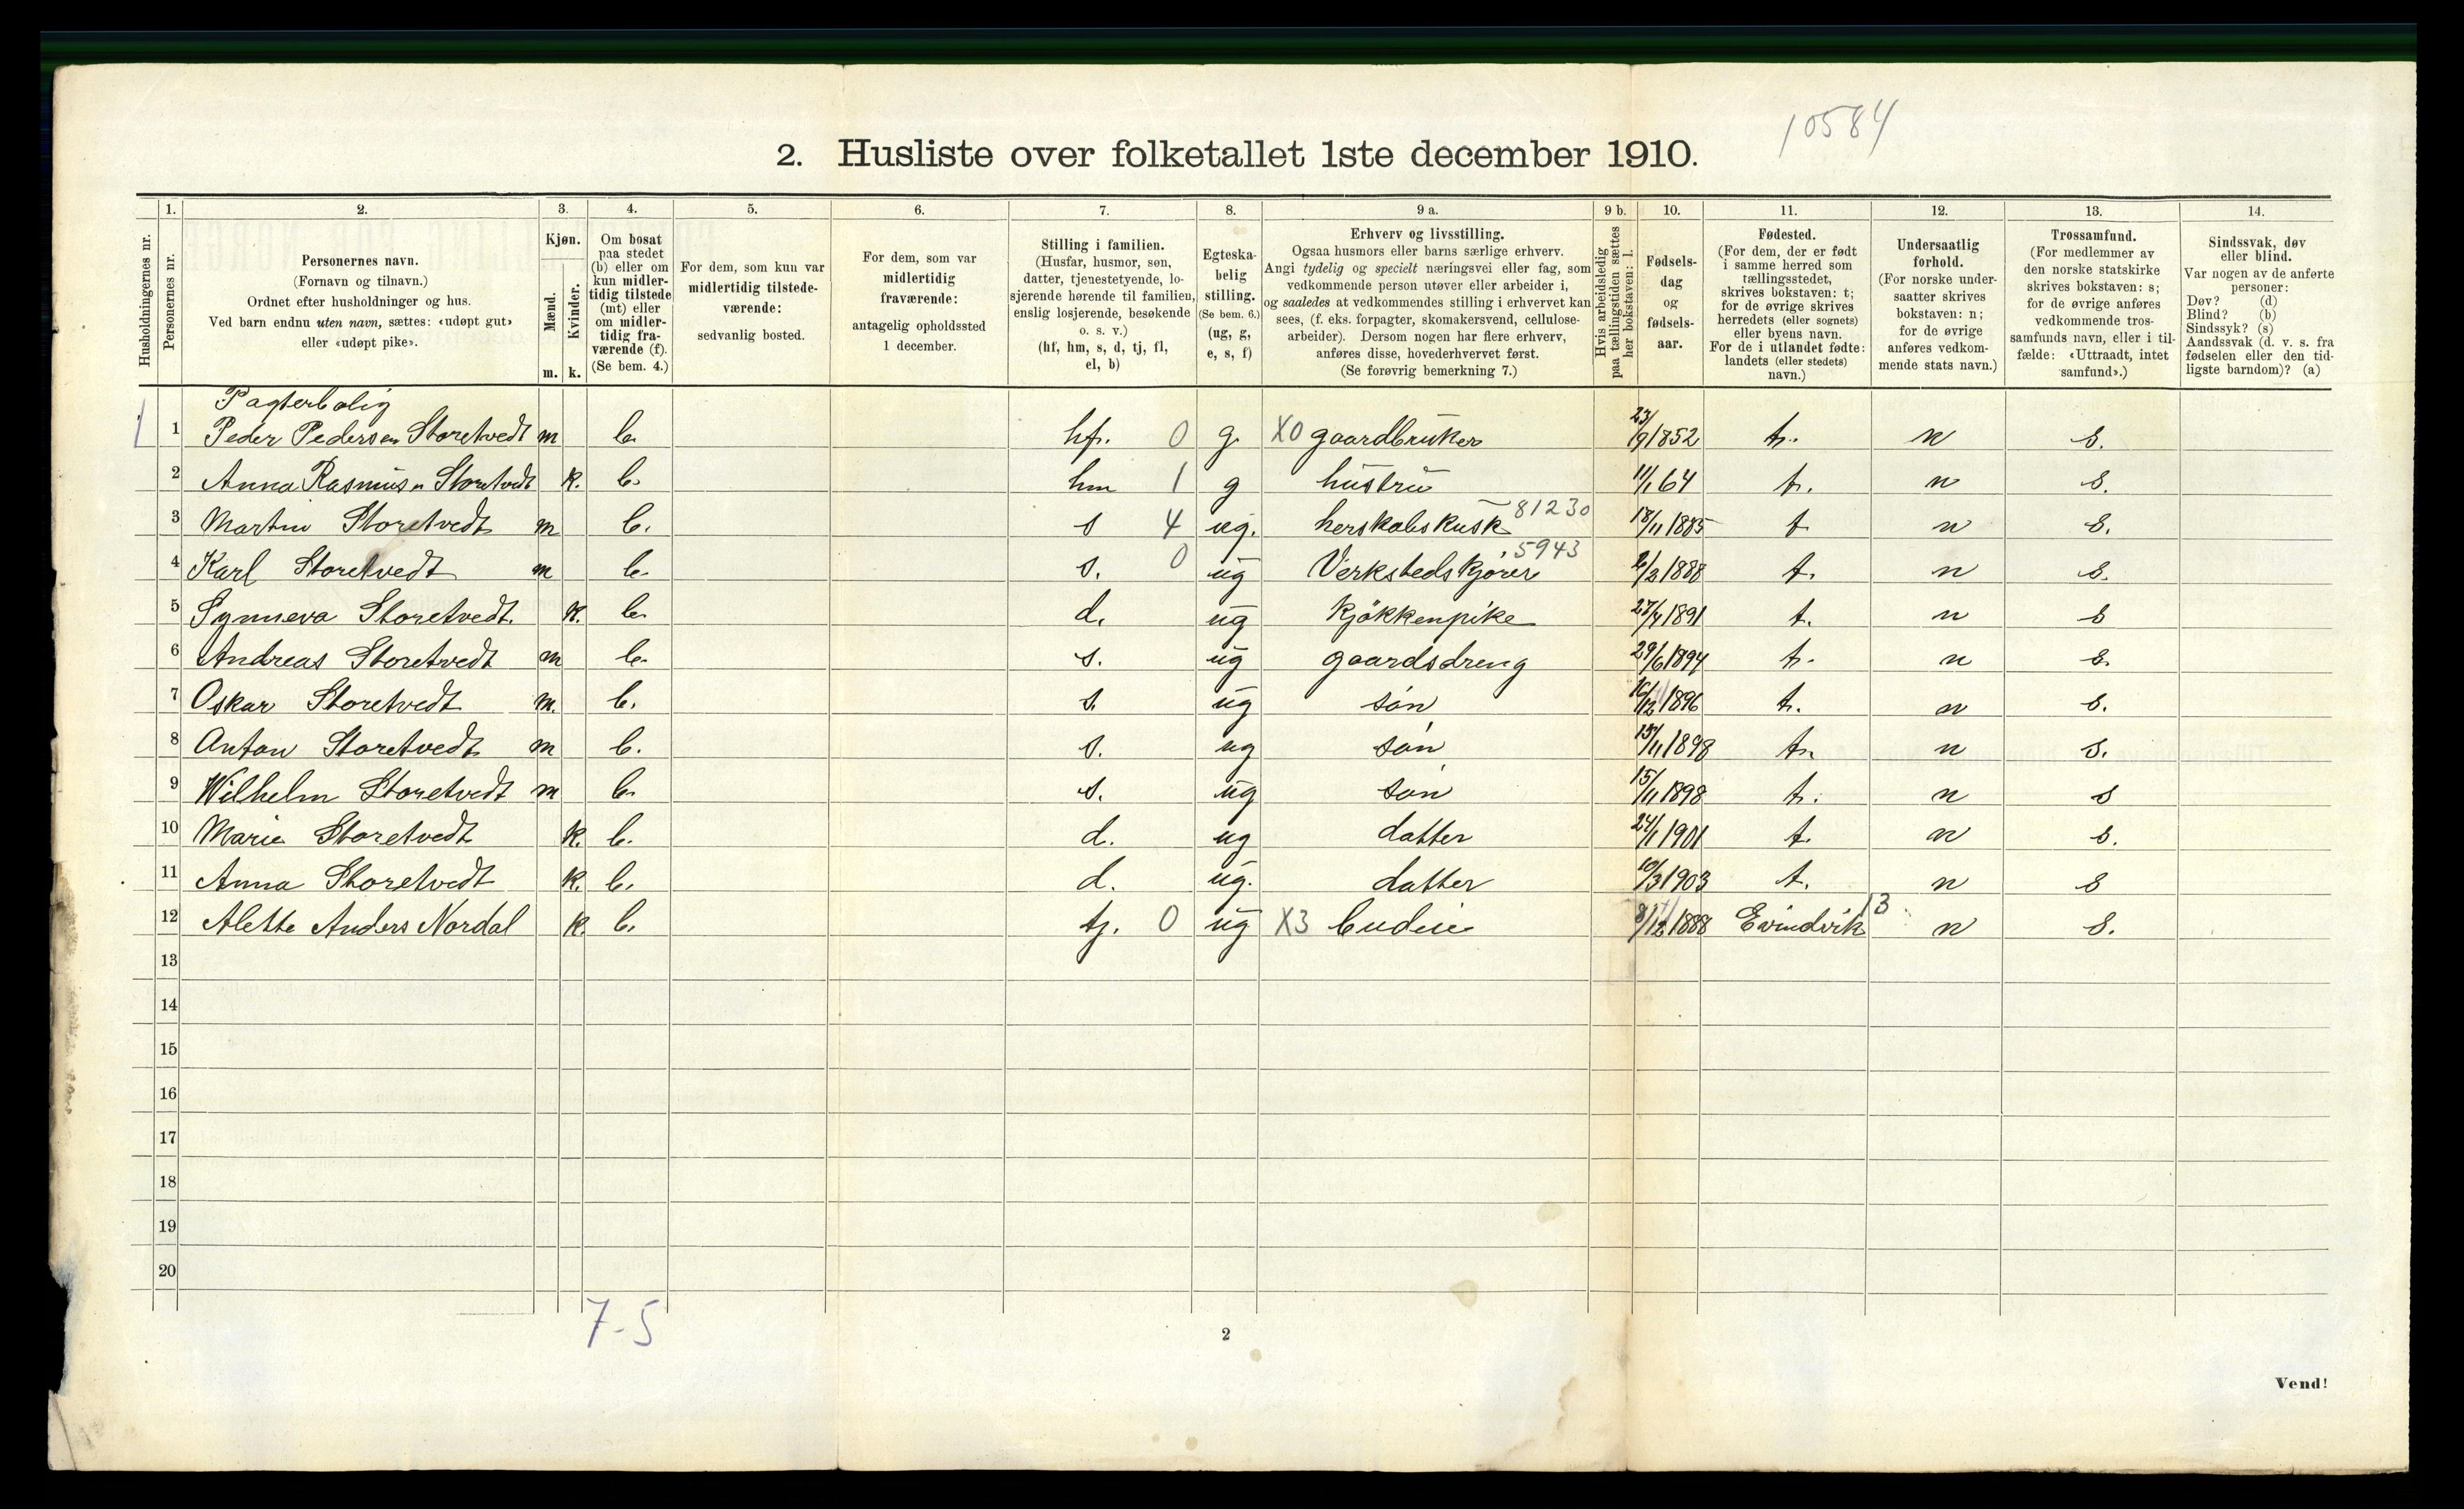 10584
2. Husliste over folketallet 1ste december 1910.
Husholdningernes nr.
1.
Personernes nr.
2.
Personernes navn.
(Fornavn og tilnavn.)
Ordnet efter husholdninger og hus.
Ved barn endnu uten navn, sættes: «udøpt gut»
eller «udøpt pike».
3.
Kjøn.
Mænd.
Kvinder.
m. k.
4.
Om bosat
paa stedet
(b) eller om
kun midler-
tidig tilstede
(mt) eller
om midler-
tidig fra-
værende (f).
(Se bem. 4.)
5.
For dem, som kun var
midlertidig tilstede-
værende:
sedvanlig bosted.
6.
For dem, som var
midlertidig
fraværende:
antagelig opholdssted
1 december.
7.
Stilling i familien.
(Husfar, husmor, søn,
datter, tjenestetyende, lo-
sjerende hørende til familien,
enslig losjerende, besøkende
o. s. v.)
(hf, hm, s, d, tj, fl,
el, b)
8.
Egteska-
belig
stilling.
(Se bem. 6.)
(ug, g,
e, s, f)
9 a.
Erhverv og livsstilling.
Ogsaa husmors eller barns særlige erhverv.
Angi tydelig og specielt næringsvei eller fag, som
vedkommende person utøver eller arbeider i,
og saaledes at vedkommendes stilling i erhvervet kan
sees, (f. eks. forpagter, skomakersvend, cellulose-
arbeider). Dersom nogen har flere erhverv,
anføres disse, hovederhvervet først.
(Se forøvrig bemerkning 7.)
9 b.
Hvis arbeidsledig
paa tællingstiden sættes
her bokstaven: l.
10.
Fødsels-
dag
og
fødsels-
aar.
11.
Fødested.
(For dem, der er født
i samme herred som
tællingsstedet,
skrives bokstaven: t;
for de øvrige skrives
herredets (eller sognets)
eller byens navn.
For de i utlandet fødte:
landets (eller stedets)
navn.)
12.
Undersaatlig
forhold.
(For norske under-
saatter skrives
bokstaven: n;
for de øvrige
anføres vedkom-
mende stats navn.)
13.
Trossamfund.
(For medlemmer av
den norske statskirke
skrives bokstaven: s;
for de øvrige anføres
vedkommende tros-
samfunds navn, eller i til-
fælde: «Uttraadt, intet
samfund».)
14.
Sindssvak, døv
eller blind.
Var nogen av de anførte
personer:
Døv? (d)
Blind? (b)
Sindssyk? (s)
Aandssvak (d. v. s. fra
fødselen eller den tid-
ligste barndom)? (a)
Pagterbolig
1 1 Peder Pedersen Storetvedt m b. hf. 0 g. X0 gaardbruker 23/9 1852 t. n s.
2 Anna Rasmusn Storetvedt k. b. hm 1 g hustru 11/1 64 t. n s.
3 Martin Storetvedt m b. s 4 ug. herskabskusk 81230 18/11 1885 t n s.
4 Karl Storetvedt m b. s. 0 ug Verkstedskjörer 5943 2/2 1888 t. n s.
5 Synneva Storetvedt. k. b. d. ug Kjökkenpike 27/4 1891 t. n s
6 Andreas Storetvedt m b. s. ug gaardsdreng 29/6 1894 t. n s.
7 Oskar Storetvedt m. b. s. ug sön 16/12 1896 t. n s.
8 Anton Storetvedt m b. s. ug sön 15/11 1898 t. n s.
9 Wilhelm Storetvedt m b. s. ug sön 15/11 1898 t. n s
10 Marie Storetvedt k. b. d. ug datter 24/1 1901 t. n s.
11 Anna Storetvedt k. b. d. ug. datter 10/3 1903 t. n s
12 Alette Anders Nordal k. b. tj. 0 ug X3 budeie 8/12 1888 Evindvik 13 n s.
13
14
15
16
17
18
19
20
7-5
2
Vend!